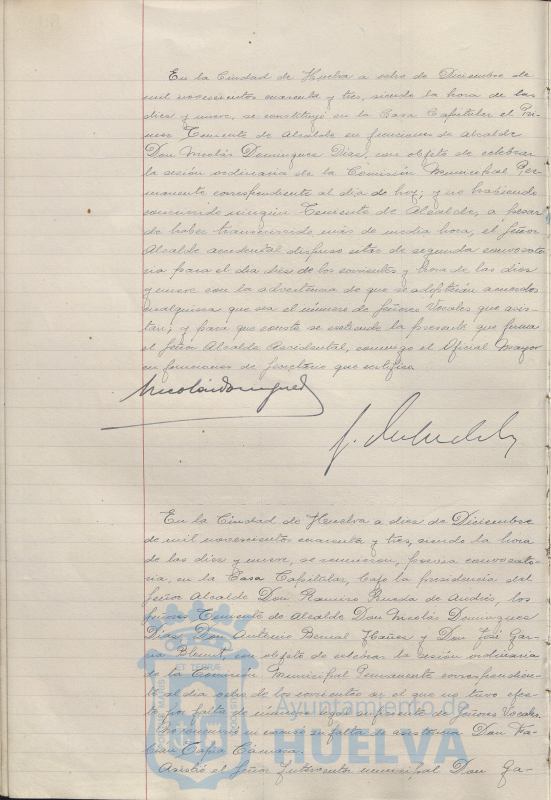 En la Ciudad de Huelva a ocho de Diciembre de
mil novecientos cuarenta y tres, siendo la hora de las
diez y nueve, se constituyó en la Casa Capitular el Pri-
mer Teniente de Alcalde en funciones de Alcalde
Don Nicolás Dominguez Diaz, con objeto de celebrar
la sesión ordinaria de la Comisión Municipal Per-
manente correspondiente al dia de hoy; y no habiendo
concurrido ningún Teniente de Alcalde, a pesar
de haber transcurrido más de media hora, el Señor
Alcalde accidental dispuso citar de segunda convocato-
ria para el dia diez de los corrientes y hora de las diez
y nueve con la advertencia de que se adoptarán acuerdos
cualquiera que sea el número de Señores Vocales que asis-
tan; y para que conste se extiende la presente que firma
el Señor Alcalde Accidental, conmigo el Oficial Mayor
en funciones de Secretario que certifico
Nicolás Dominguez
En la Ciudad de Huelva a diez de Diciembre
de mil novecientos cuarenta y tres, siendo la hora
de las diez y nueve, se reunieron, previa convocato-
ria, en la Casa Capitular, bajo la presidencia del
Señor Alcalde Don Ramiro Rueda de Andrés, los
Señores Teniente de Alcalde Don Nicolás Dominguez
Diaz, Don Antonio Bernal Yañez y Don José Gar-
cia con objeto de celebrar la sesión ordinaria
de la Comisión Municipal Permanente correspondien-
te al dia ocho de los corrientes en el que no tuvo efec-
to por falta de número suficiente de Señores Vocales.
su falta de asistencia Don Fa-
bian Tapia Camaca.
Asistió el Señor Interventor municipal Don Ga-
ET TERRAE
Ayuntamiento de
HUELVA